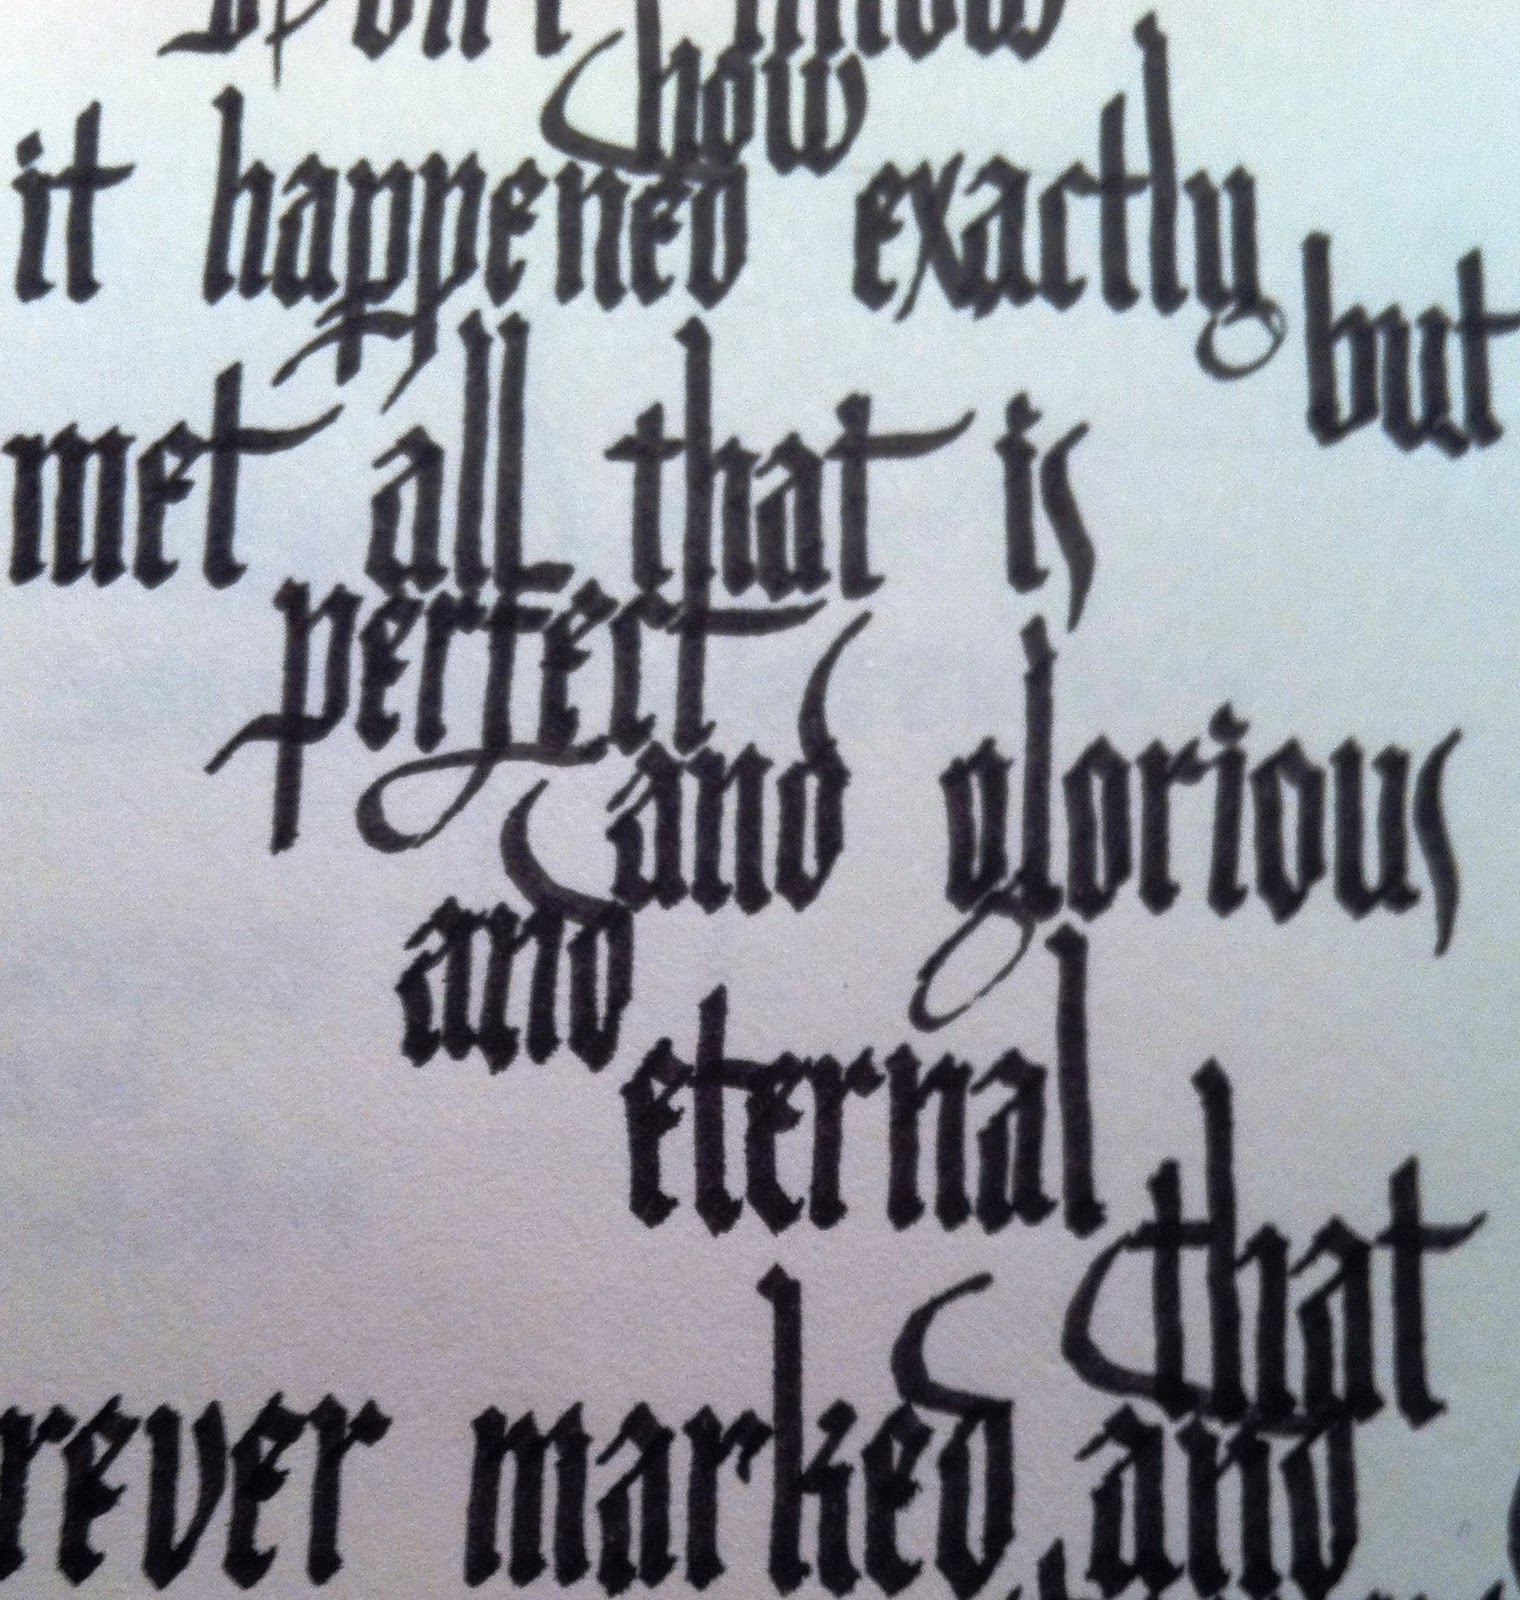 don't know
how
it happened exactly
but
met all that is
perfect
and glorious
and
eternal
that
rever marked and